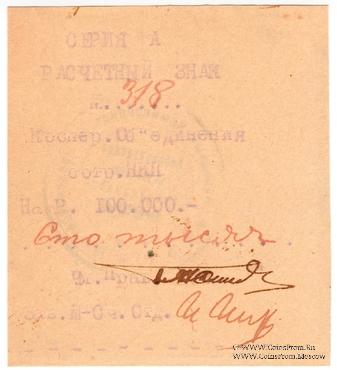 СЕРИЯ А
РАСЧЕТНЫЙ ЗНАК
№ 318
Коопер. Об"единения
сотр. НКП
На Р. 100.000.-
Сто тысяч
Зав. М-Сч. Отд.
© www.CoinsProm.Ru
© Www.CoinsProm.com